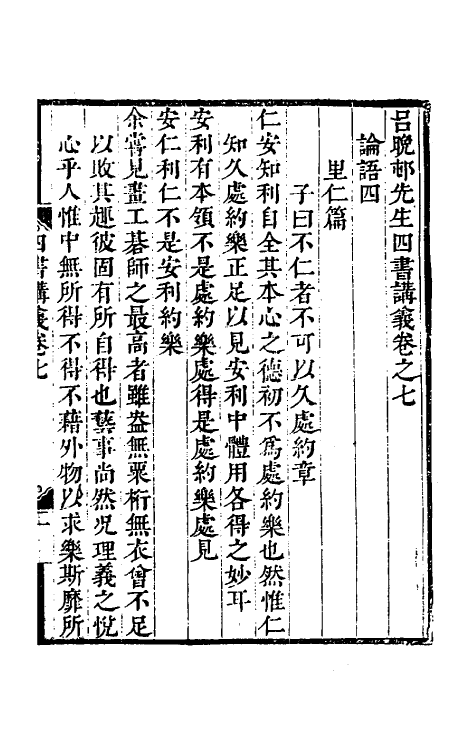 呂晚邨先生四書講義卷之七
論語四
里仁篇
子曰不仁者不可以久處約章
仁安知利自全其本心之德初不為處約樂也然惟仁
知久處約樂正足以見安利中體用各得之妙耳
安利有本領不是處約樂處得是處約樂處見
安仁利仁不是安利約樂
余嘗見畫工碁師之最高者雖盎無粟桁無衣曾不足
以敗其趣彼固有所自得也藝事尚然况理義之悅
心乎人惟中無所得不得不藉外物以求樂斯靡所
四書講義卷七
一